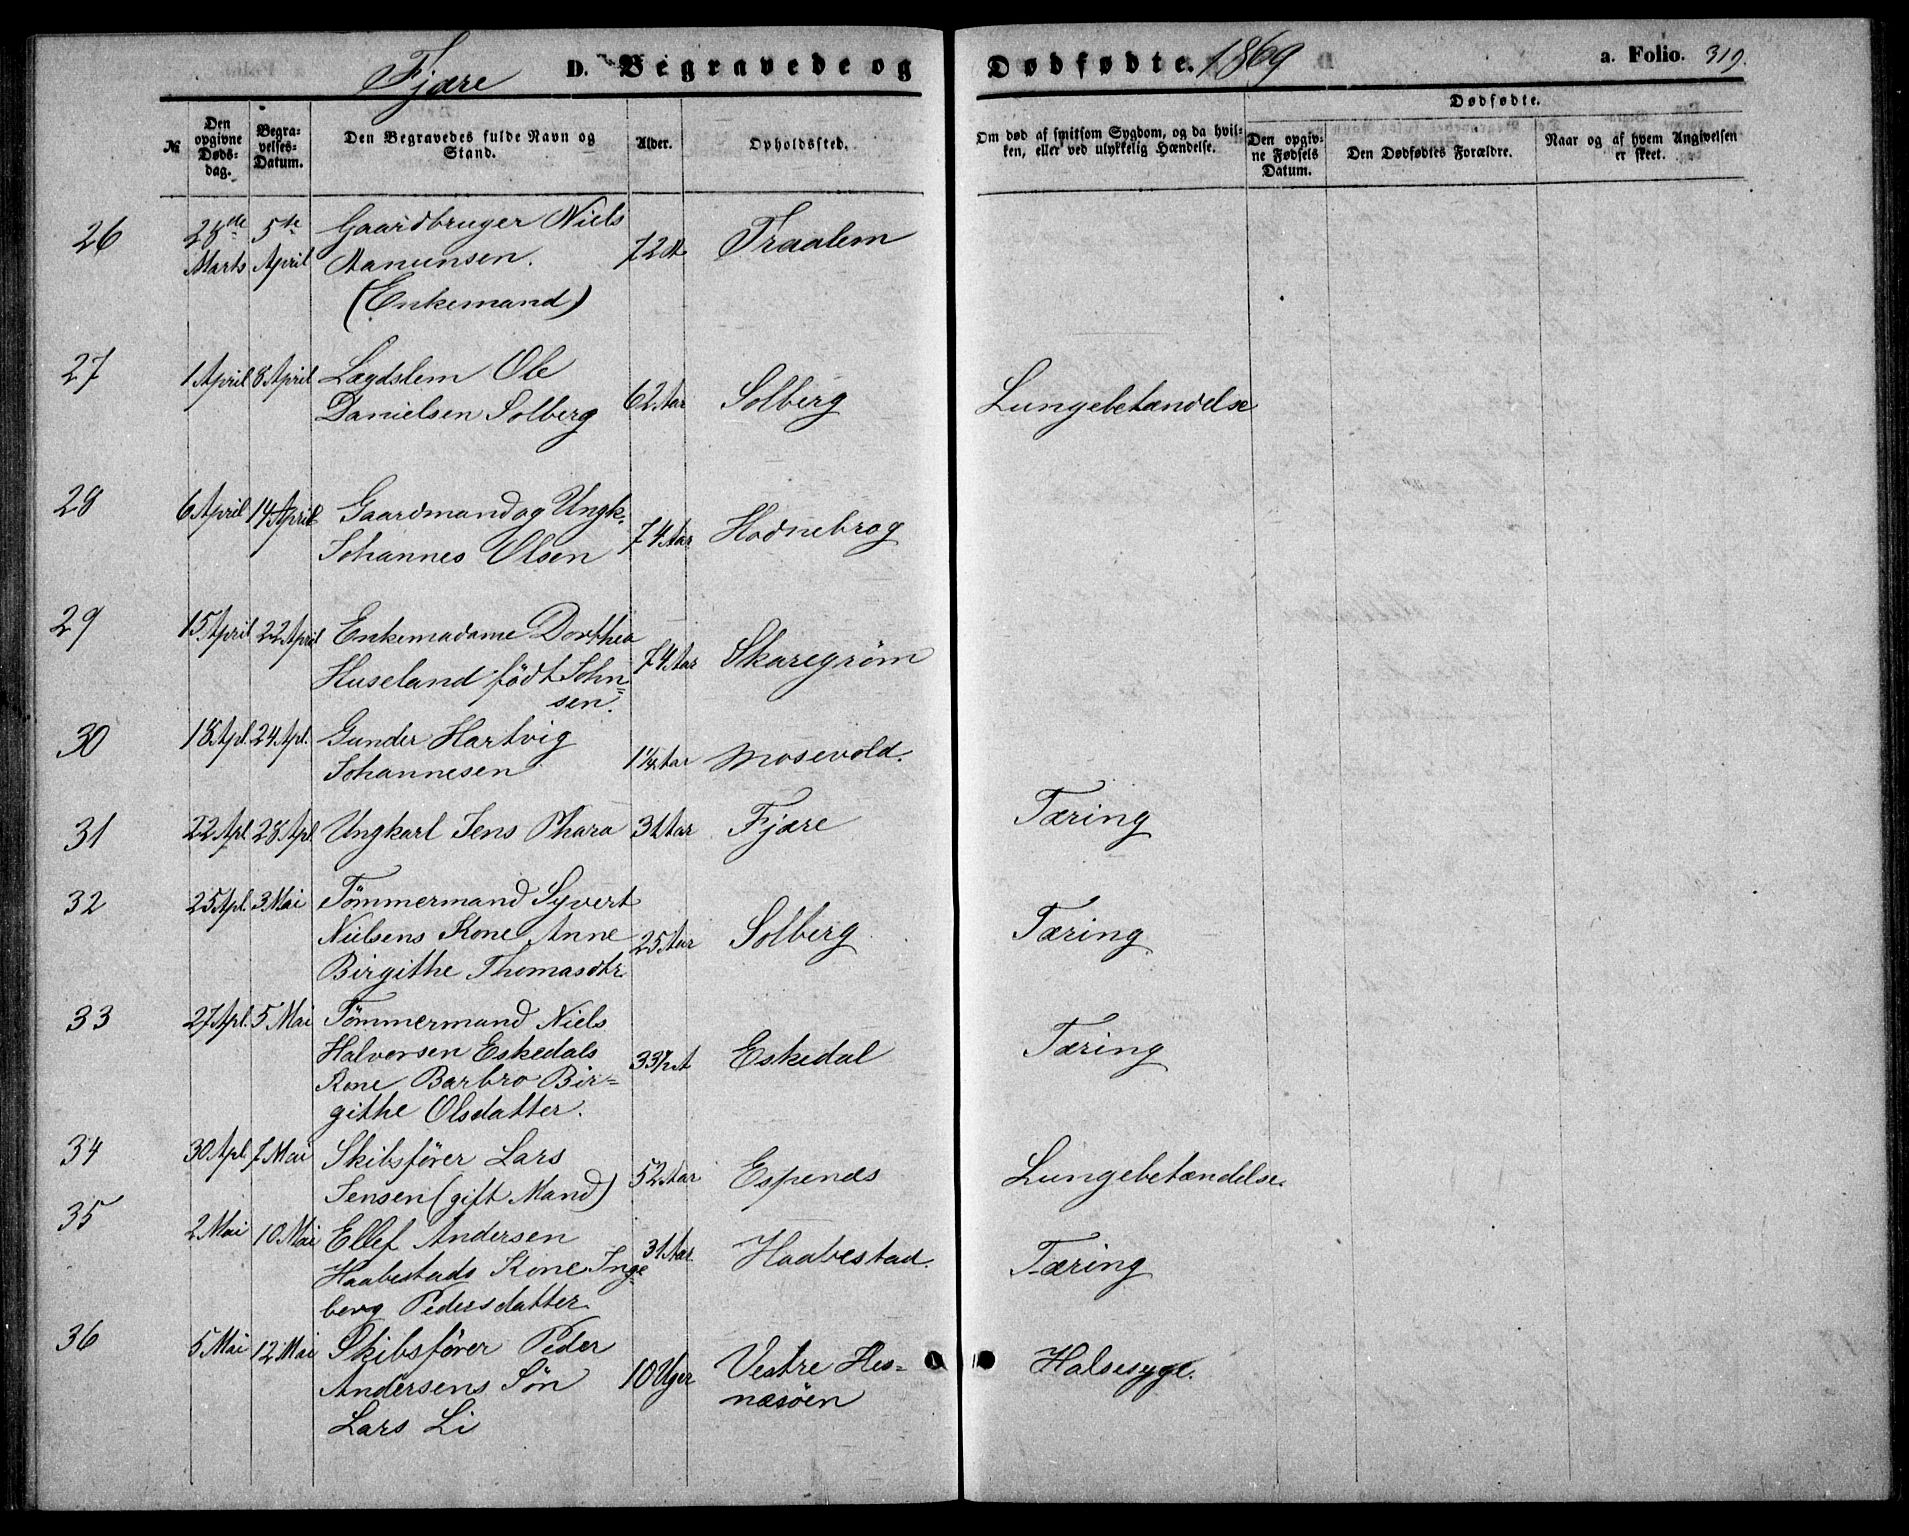 Fjære D. Begravede og Dødfødte. 1869 a. Folio. 319.
№ Den opgivne Døds-dag. Begra-velses-Datum. Den Begravedes fulde Navn og Stand. Alder. Opholdssted. Om død af smitsom Sygdom, og da hvil-ken, eller ved ulykkelig Hændelse. Dødfødte.
Den opgiv-ne Fødsels Datum. Den Dødfødtes Forældre. Naar og af hvem Angivelsen er skeet.
26 28de Marts 5te April Gaardbruger Niels 72 A Traalem
Aanunsen.
(Enkemand)
27 1 April 8 April Lægdslem Ole 62 Aar Solberg Lungebetændelse
Danielsen Solberg
28 6 April 14 April Gaardmand og Ungk. 74 Aar Hodnebrog
Johannes Olsen
29 15 April 22 April Enkemadame Dorthea 74 Aar Skaregrøm
Huseland født John=
sen.
30 18 Apl. 24 Apl. Gunder Hartvig 1¼ Aar Mosevold.
Johannesen
31 22 Apl. 28 Apl. Ungkarl Jens Phara 31 Aar Fjære Tæring
32 25 Apl. 3 Mai Tømmermand Syvert 25 Aar Solberg Tæring
Nielsens Kone Anne
Birgithe Thomasdtr.
33 27 Apl. 5 Mai Tømmermand Niels 33½ A Eskedal Tæring
Halvorsen Eskedals
Kone Barbro Bir=
githe Olsdatter.
34 30 Apl. 7 Mai Skibsfører Lars 52 Aar Espenæs Lungebetændelse.
Jensen (gift Mand)
35 2 Mai 10 Mai Ellef Andersen 31 Aar Haabestad. Tæring
Haabestads Kone Inge
berg Pedersdatter.
36 5 Mai 12 Mai Skibsfører Peder 10 Uger Vestre Hes= Halsesyge.
Andersens Søn næsøen
Lars Li